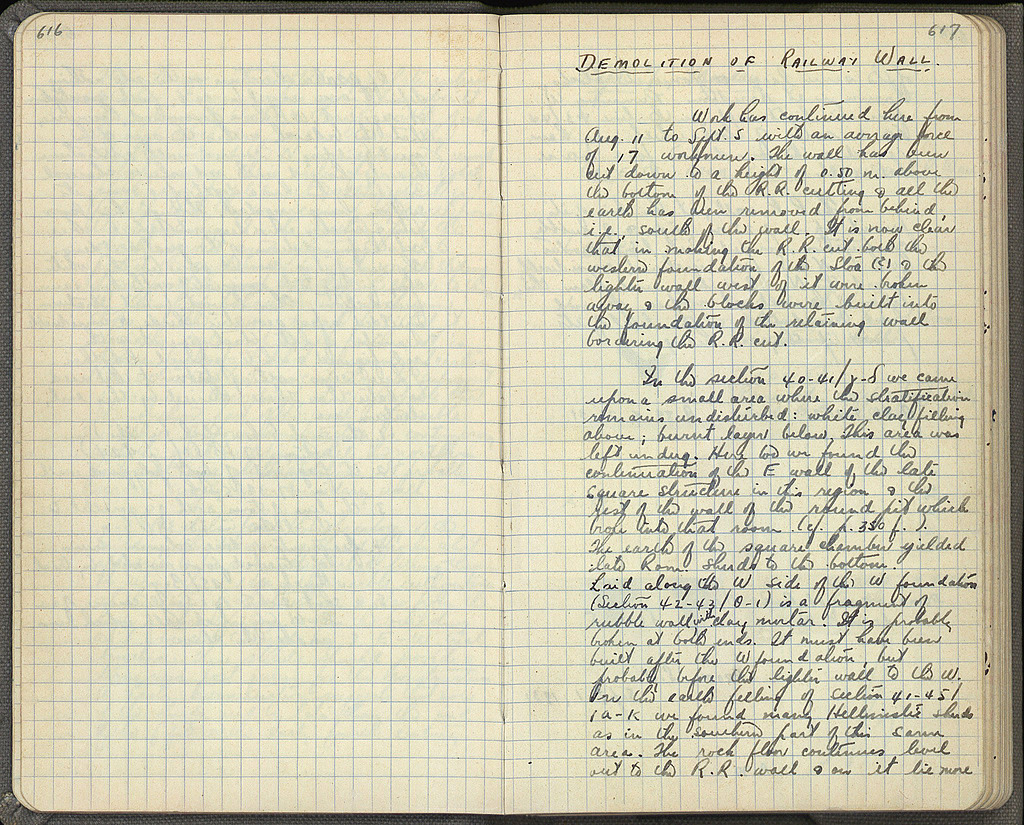 616
617
DEMOLITION OF RAILWAY WALL.
Work has continued here from
Aug. 11 to Sept. 5 with an average force
of 17 workmen. The wall has been
cut down to a height of 0.50 m. above
the bottom of the R.R. cutting & all the
earth has been removed from behind,
i.e., south of the wall. It is now clear
that in making the R.R. cut both the
western foundation of the Stoa (?) & the
lighter wall west of it were broken
away & the blocks were built into
the foundation of the retaining wall
bordering the R.R. cut.
In the section 40-41/γ-δ we came
upon a small area where the stratification
remains undisturbed: white clay filling
above; burnt layer below. This area was
left undug. Here too we found the
continuation of the E wall of the late
square structure in this region & the
rest of the wall of the round pit which
broke into that room (cf. p. 330 f.).
The earth of the square chamber yielded
late Rom. sherds to the bottom.
Laid along the W side of the W foundation
(Section 42-43/θ-ι) is a fragment of
rubble wall with clay mortar. It is probably
broken at both ends. It must have been
built after the W foundation, but
probably before the lighter wall to the W.
In the earth filling of section 41-45/
ια-κ we found many Hellenistic sherds
as in the southern part of this same
area. The rock floor continues level
out to the R.R. wall & on it lie more